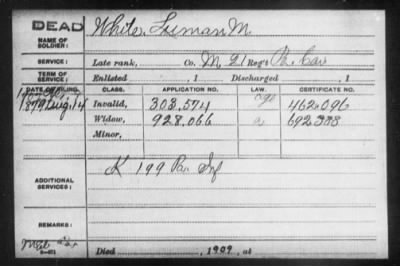 DEAD
NAME OF SOLDIER: White, Truman M.
SERVICE: Late rank, Co. M, 21 Reg't Pa. Cav
TERM OF SERVICE: Enlisted , 1 Discharged , 1
DATE OF FILING. CLASS. APPLICATION NO. LAW. CERTIFICATE NO.
1879 Aug 14 Invalid, 303.574 462.096
Widow, 928.066 692388
Minor,
ADDITIONAL SERVICES: K 199 Pa. Inf
REMARKS:
Died , 1909, at